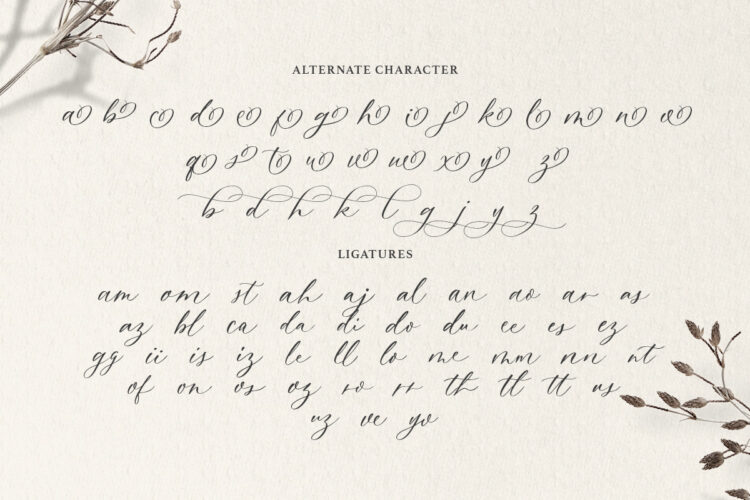 ALTERNATE CHARACTER
a b c d e f g h i j k l m n o
q s t u v w x y z
b d h k l g j y z
LIGATURES
am om st ah aj al an ao ar as
az bl ca da di do du ee es ez
gg ii is iz le ll lo me mm nn nt
of on os oz ro rr th tl tt us
uz ve yo